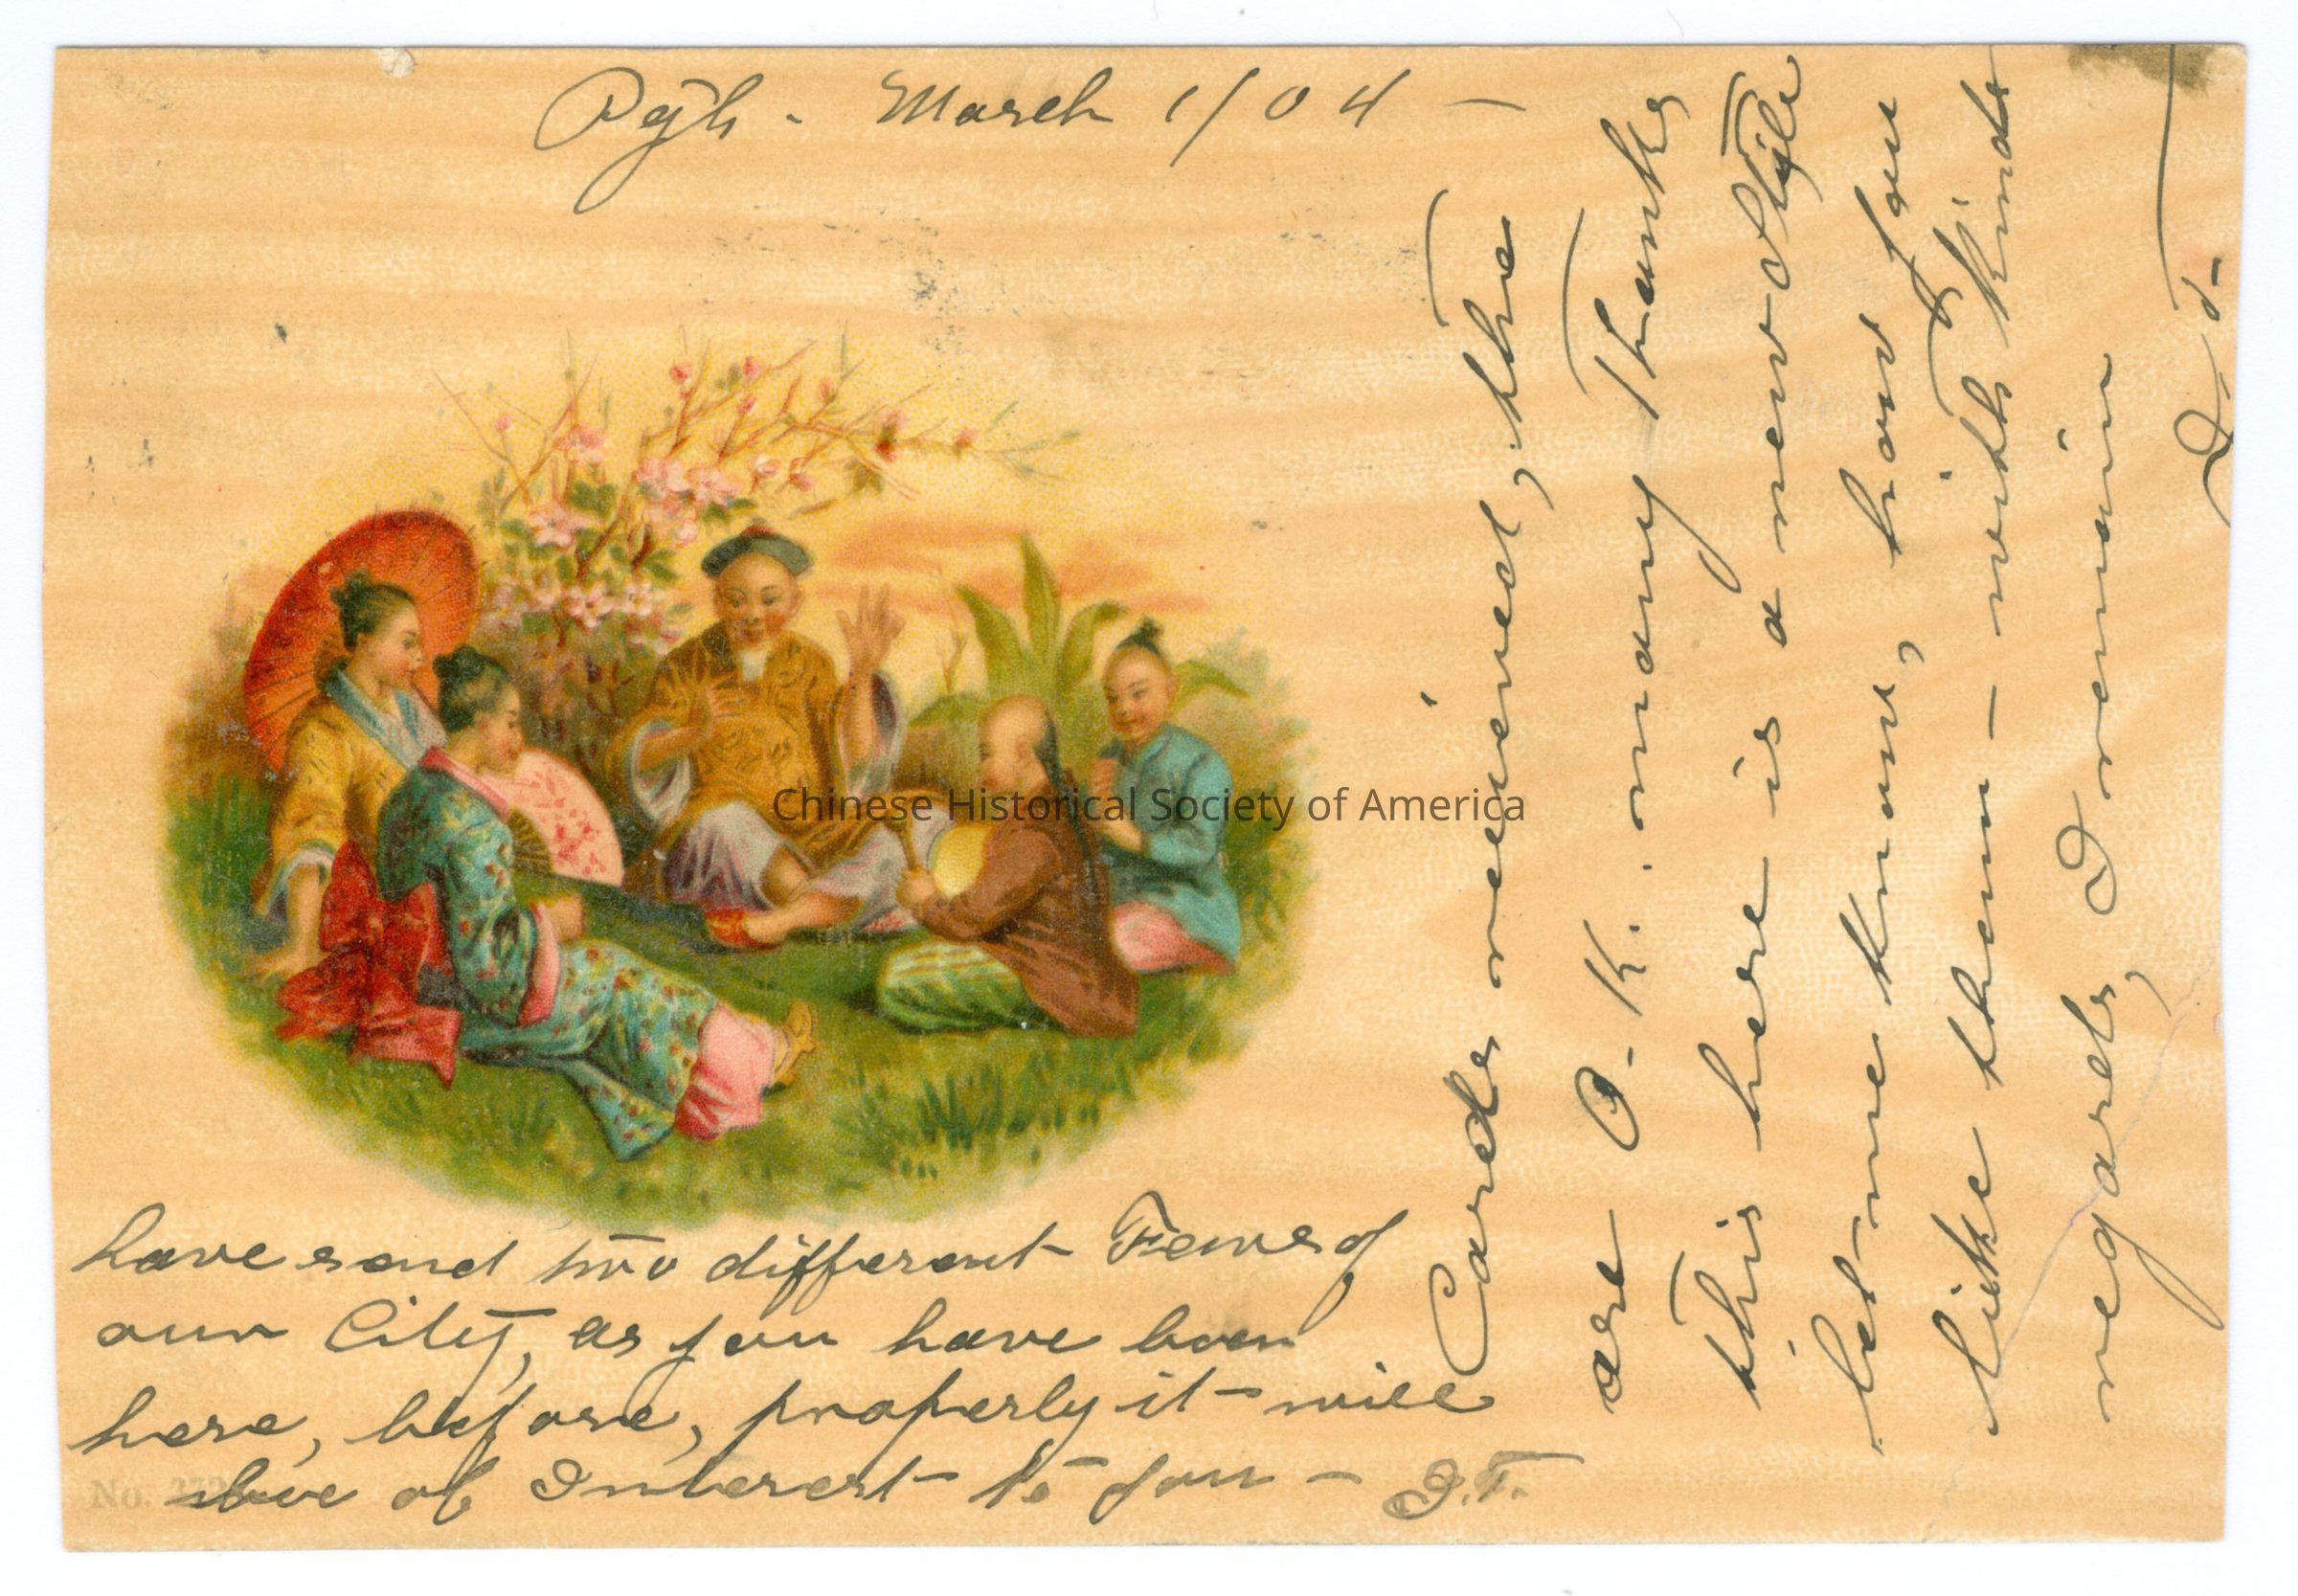 Pgh - March 1/04 -
Cards received, the
are O-K. many Thanks
this here is a new Style
let me know, how you
like them - with kinds
regards, I remain
have send two different Fews of
our City, as you have been
here, before, properly it will
bee of Interest to you -
No.
Chinese Historical Society of America